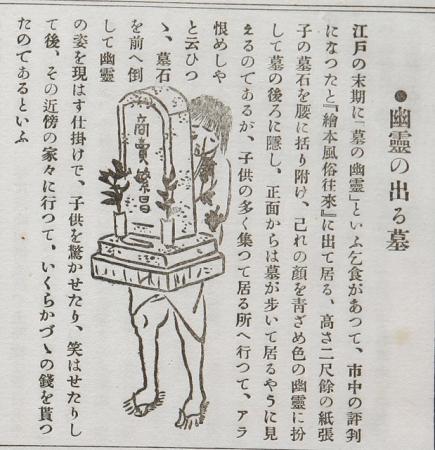 ●幽靈の出る墓
江戸の末期に「墓の幽靈」といふ乞食があつて、市中の評判
になつたと『繪本風俗往來』に出て居る、高さ二尺餘の紙張
子の墓石を腰に括り附け、己れの顔を靑ざめ色の幽靈に扮
して墓の後ろに隱し、正面からは墓が歩いて居るやうに見
えるのであるが、子供の多く集つて居る所へ行つて、アラ
恨めしや
と云ひつ
ゝ、墓石
を前へ倒
して幽靈
の姿を現はす仕掛けで、子供を驚かせたり、笑はせたりし
て後、その近傍の家々に行つて、いくらかづゝの錢を貰つ
たのであるといふ
商賣繁昌